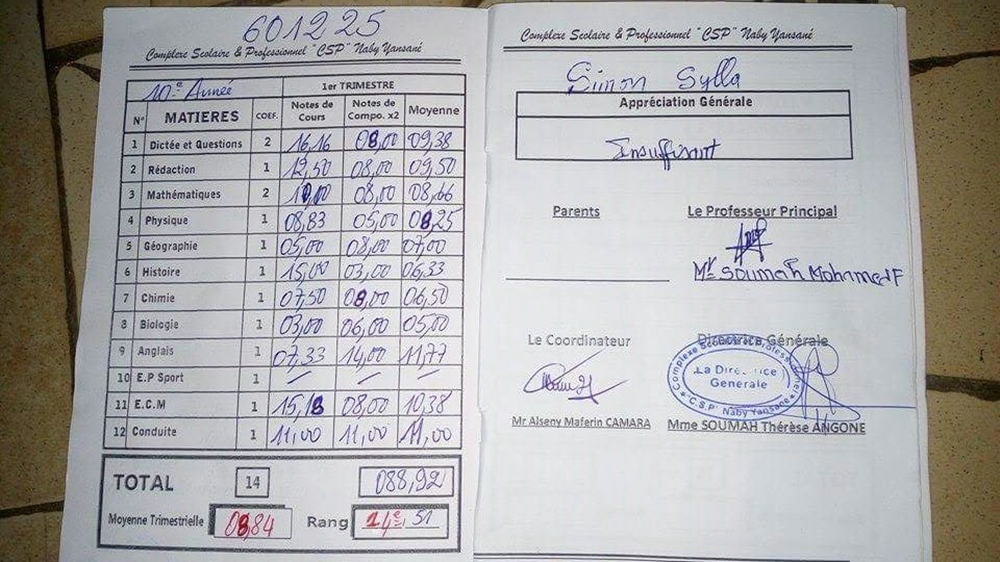 601225
Complexe Scolaire & Professionnel "CSP" Naby Yansané
10e Année 1er TRIMESTRE
N° MATIERES COEF. Notes de Cours Notes de Compo. x2 Moyenne
1 Dictée et Questions 2 16,16 08,00 09,38
2 Rédaction 1 12,50 08,00 09,50
3 Mathématiques 2 10,00 08,00 08,66
4 Physique 1 08,83 05,00 08,25
5 Géographie 1 05,00 08,00 07,00
6 Histoire 1 15,00 03,00 06,33
7 Chimie 1 07,50 08,00 06,50
8 Biologie 1 03,00 06,00 05,00
9 Anglais 1 07,33 14,00 11,77
10 E.P Sport 1
11 E.C.M 1 15,18 08,00 10,38
12 Conduite 1 11,00 11,00 11,00
TOTAL 14 088,92
Moyenne Trimestrielle 08,84 Rang 14e 51
Complexe Scolaire & Professionnel "CSP" Naby Yansané
Simon Sylla
Appréciation Générale
Insuffisant
Parents Le Professeur Principal
Mr Soumah Mohamed F
Le Coordinateur Directrice Générale
Complexe Scolaire & Professionnel
La Directrice
Générale
"C.S.P" Naby Yansané
Mr Alseny Maferin CAMARA Mme SOUMAH Thérèse ANGONE